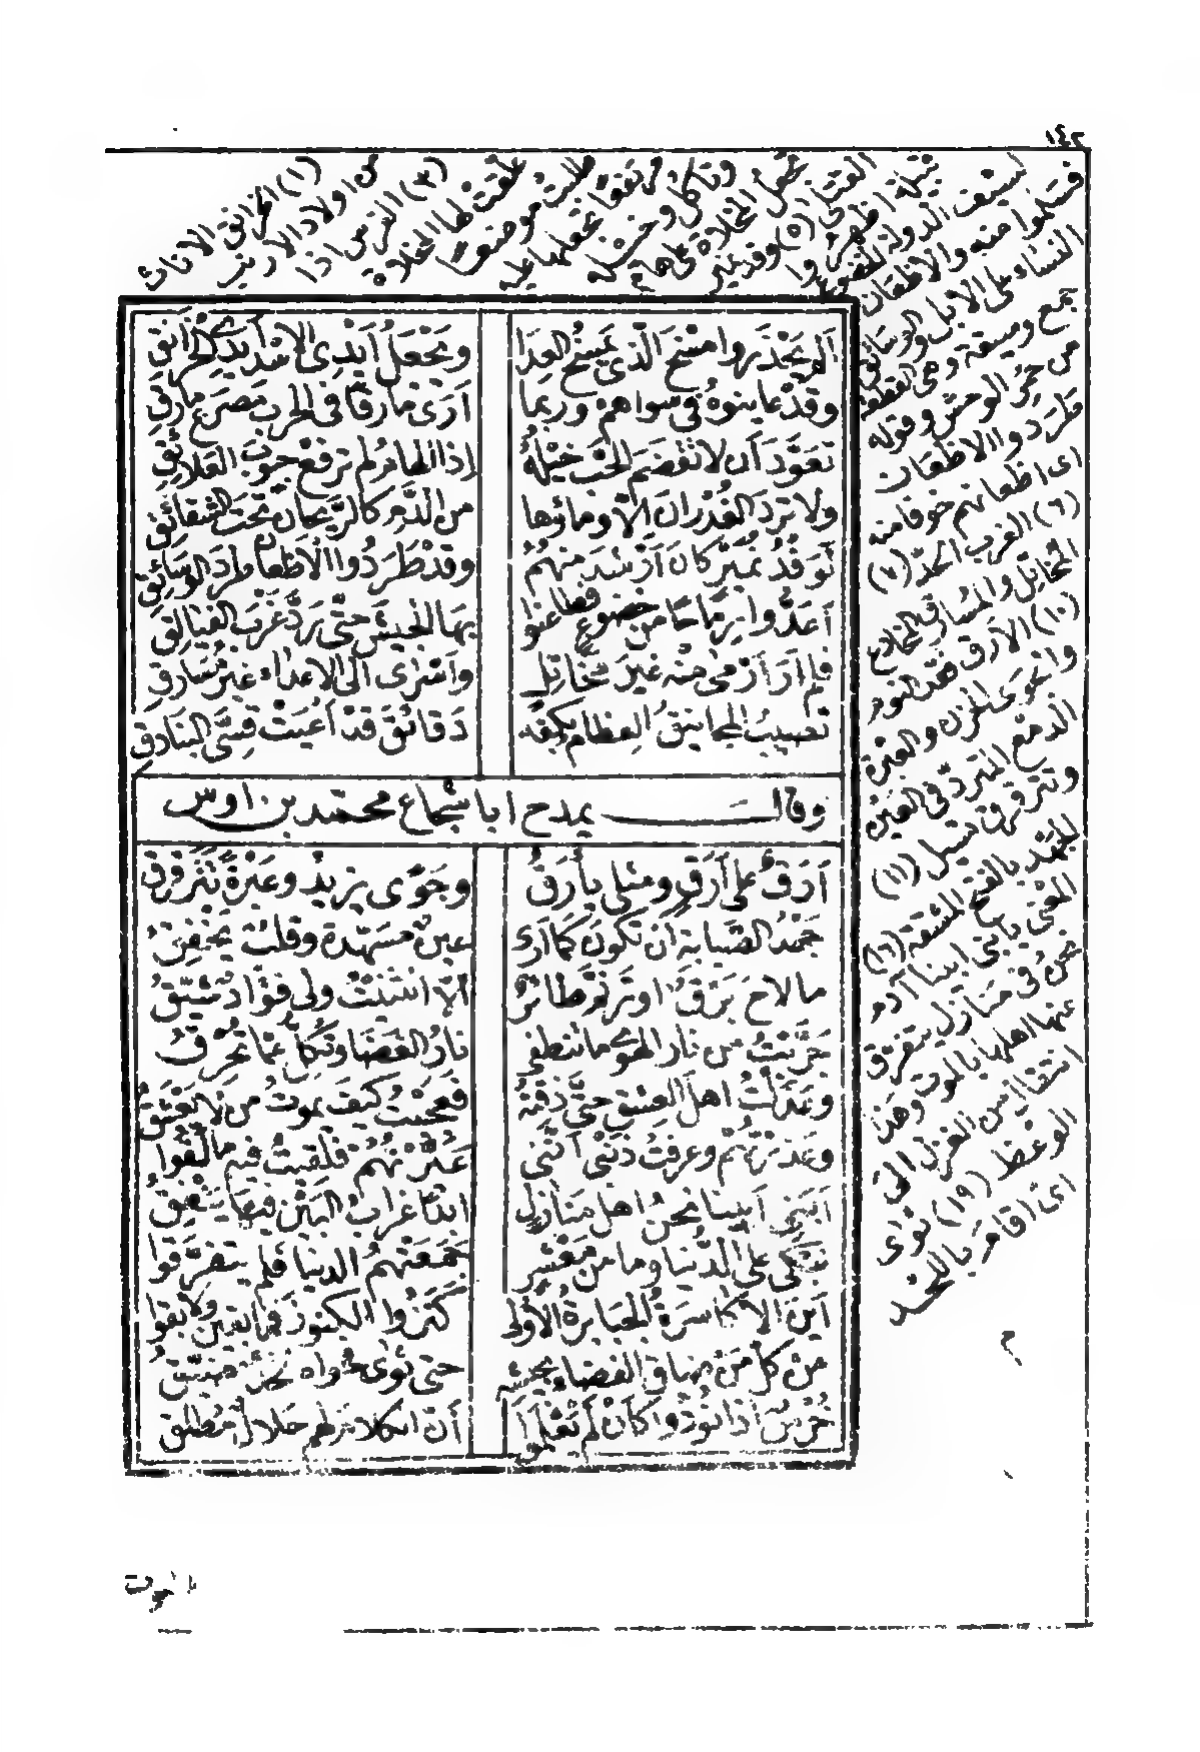 ١٤٢
أَلَمْ يَحْذَروا مسْخَ الّذى يَمْسَخُ العِدَا
ويَجْعَلُ أَيْدِى الأُسْدِ أَيدِى الْخَرانِقِ
وقَدْ عاينوهُ فى سواهم وربما
أَرَى مارقًا فى الحرب مصرع مارقِ
تعَوَّدَ أَن لا تقضم الحَبَّ خيْلهُ
إذا الهامُ لم ترفع جنوب العلائقِ
ولا تردَ الغُدْرانَ الّا وماؤها
من الدَّم كالرّيحان تحت الشقائقِ
لَوَفْدُ نُمَيْرٍ كانَ أَرْشَدَ منهُمُ
وقدْ طَرَدُوا الأظعان طردَ الوسائقِ
أعَدُّوا رماحًا من خضوعٍ فطاعنوا
بها الجيشَ حتّى رَدَّ غَرْبَ الفيالقِ
فلم أَرَ أَرْمى منه غيرَ مُخاتِلٍ
وأَسْرَى الى الاعداء غيرَ مُسارقِ
تصيبُ المجانيقُ العِظام بكفّه
دَقائقَ قدْ أعْيَتْ قِسِىَّ البنادقِ
وقالـــــ يمدح ابا شجاع محمّد بن اوس
أَرَقٌ على أَرَقٍ ومثلى يأرَقُ
وجَوًى يزيدُ وعَبْرَةٌ تَتَرَقْرَقُ
جَهْدُ الصّبابة أن تكونَ كما أرى
عينٌ مسهّدة وقلبٌ يخفقُ
ما لاحَ بَرْقٌ او ترنّم طائرٌ
الّا انثنيتُ ولى فؤاد شيّقُ
جَرّبْتُ من نار الهوى ما تنطفى
نارُ الغضا وتَكِلُّ عمّا تحْرقُ
وعَذَلْتُ اهلَ العِشقِ حتّى ذقتهُ
فعجبتُ كيفَ يموتُ من لا يَعْشَقُ
وعَذَرْتُهُمْ وعرفتُ ذَنْبى أنّنى
عَيَّرْتُهُمْ فلقيتُ فيه ما لَقُوا
أَبَنى أَبينا نحنُ اهل منازلٍ
ابدًا غرابُ البَيْن فيها يَنْعِقُ
نَبْكى على الدّنيا وما من مَعْشرٍ
جَمَعَتْهُمُ الدنيا فلم يتفرّقوا
أينَ الأكاسرَةُ الجبابرةُ الأُولى
كَنَزُوا الكنوزَ فما بقين ولا بقوا
منْ كلّ مَنْ ضاق الفضاءُ بجيشه
حتى ثوى فحواه لَحْدٌ ضيّقُ
خُرْسٌ اذا نُودُوا كأنْ لم يَعْلَموا
أنّ الكلام لهم حلالٌ مُطلقُ
(١) الخرانق الاناث
من اولاد الارنب
(٣) الفرس اذا
علقت لها المخلاة
طلبت موضعًا
مرتفعًا تجعلها عليه
وتأكل
فسلّموا منه والاظعان
النساء على الابل والوسائق
جمع وسيقة وهى القطعة
من حمر الوحش وقوله
طردوا الاظعان
اى اظعانهم خوفا منه
(٦) الغرب الحدّ (٧)
المخاتل والمسارق المخادع
(١٠) الأرق فقد النوم
والجوى الحزن والعبرة
الدمع المتردّد فى العين
وتترقرق تسيل (١١)
الجهد بالفتح المشقة (١٦)
المعنى يا بنى ابينا آدم
نحن فى منازل يتفرّق
عنها اهلها بالموت وهذا
انتقال من الغزل الى
الوعظ (١٩) ثوى
اى أقام باللحد